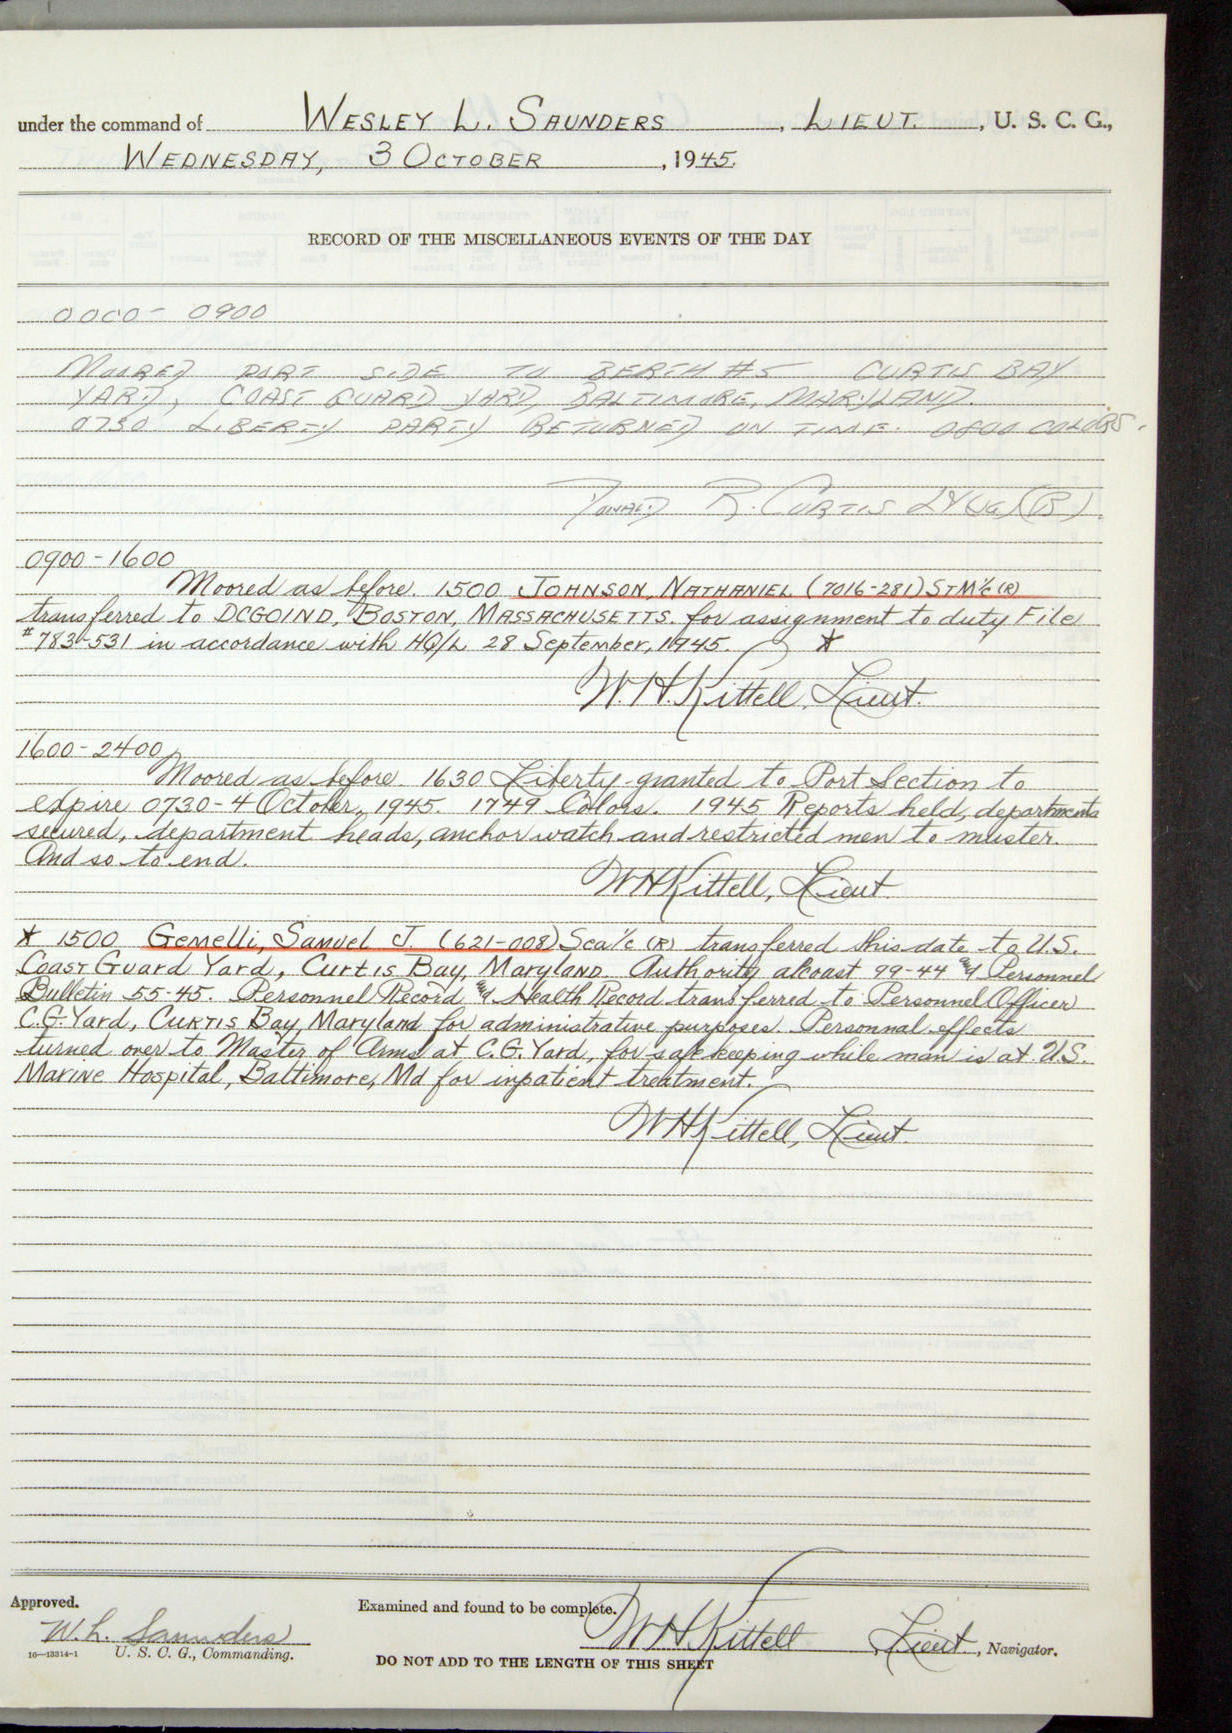 under the command of WESLEY L. SAUNDERS, LIEUT., U. S. C. G.,
WEDNESDAY, 3 OCTOBER, 1945.
RECORD OF THE MISCELLANEOUS EVENTS OF THE DAY
0000 - 0900
MOORED PORT SIDE TO BERTH #5 CURTIS BAY
YARD, COAST GUARD YARD, BALTIMORE, MARYLAND.
0730 LIBERTY PARTY RETURNED ON TIME. 0800 COLORS.
DONALD R. CURTIS Lt (JG) (R).
0900-1600
Moored as before. 1500 JOHNSON, NATHANIEL (7016-281) STM1/c (R)
transferred to DCGOIND, BOSTON, MASSACHUSETTS. for assignment to duty File
#783-531 in accordance with HQ/L 28 September, 1945. *
W.H. Kittell, Lieut.
1600-2400
Moored as before 1630 Liberty granted to Port Section to
expire 0730-4 October, 1945. 1749 Colors. 1945 Reports held, departments
secured, department heads, anchor watch and restricted men to muster.
And so to end.
WHKittell, Lieut.
* 1500 Gemelli, Samuel J. (621-008) Sea1/c (R) transferred this date to U.S.
Coast Guard Yard, Curtis Bay, Maryland. Authority alcoast 99-44 & Personnel
Bulletin 55-45. Personnel Record & Health Record transferred to Personnel Officer
C.G. Yard, Curtis Bay, Maryland for administrative purposes. Personnal effects
turned over to Master of Arms at C.G. Yard, for safe keeping while man is at U.S.
Marine Hospital, Baltimore, Md for inpatient treatment.
WHKittell, Lieut.
Approved.
Examined and found to be complete.
W. L. Saunders
WHKittell Lieut., Navigator.
16—13314-1 U. S. C. G., Commanding.
DO NOT ADD TO THE LENGTH OF THIS SHEET